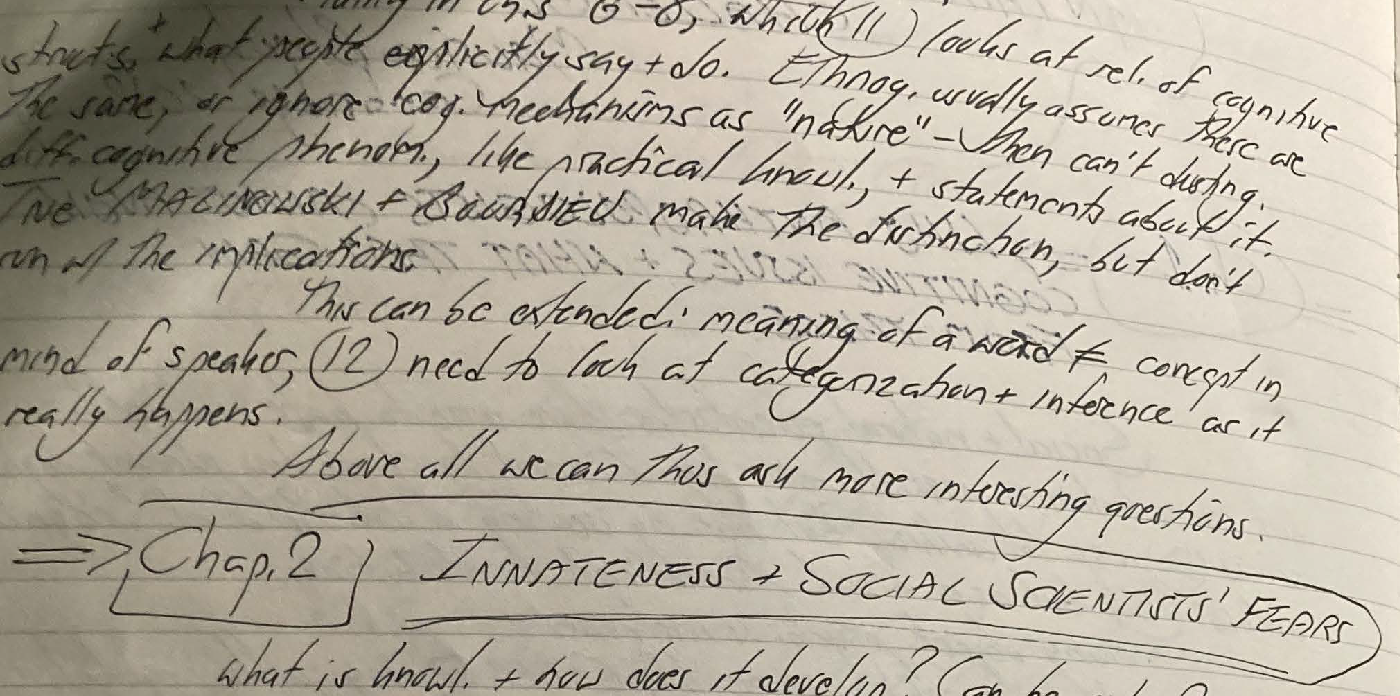 in this G-G, which (11) looks at rel. of cognitive
structs, + what people explicitly say + do. Ethnog. usually assumes there are
the same, or ignore cog. mechanisms as "nature" – then can't disting.
diff. cognitive phenom., like practical knowl., + statements about it.
True MALINOWSKI + BOURDIEU make the distinction, but don't
run w/ the implications.
This can be extended: meaning of a word ≠ concept in
mind of speaker, (12) need to look at categorization + inference as it
really happens.
Above all we can thus ask more interesting questions.
=> Chap. 2 INNATENESS + SOCIAL SCIENTISTS' FEARS
what is knowl. + how does it develop? Can be